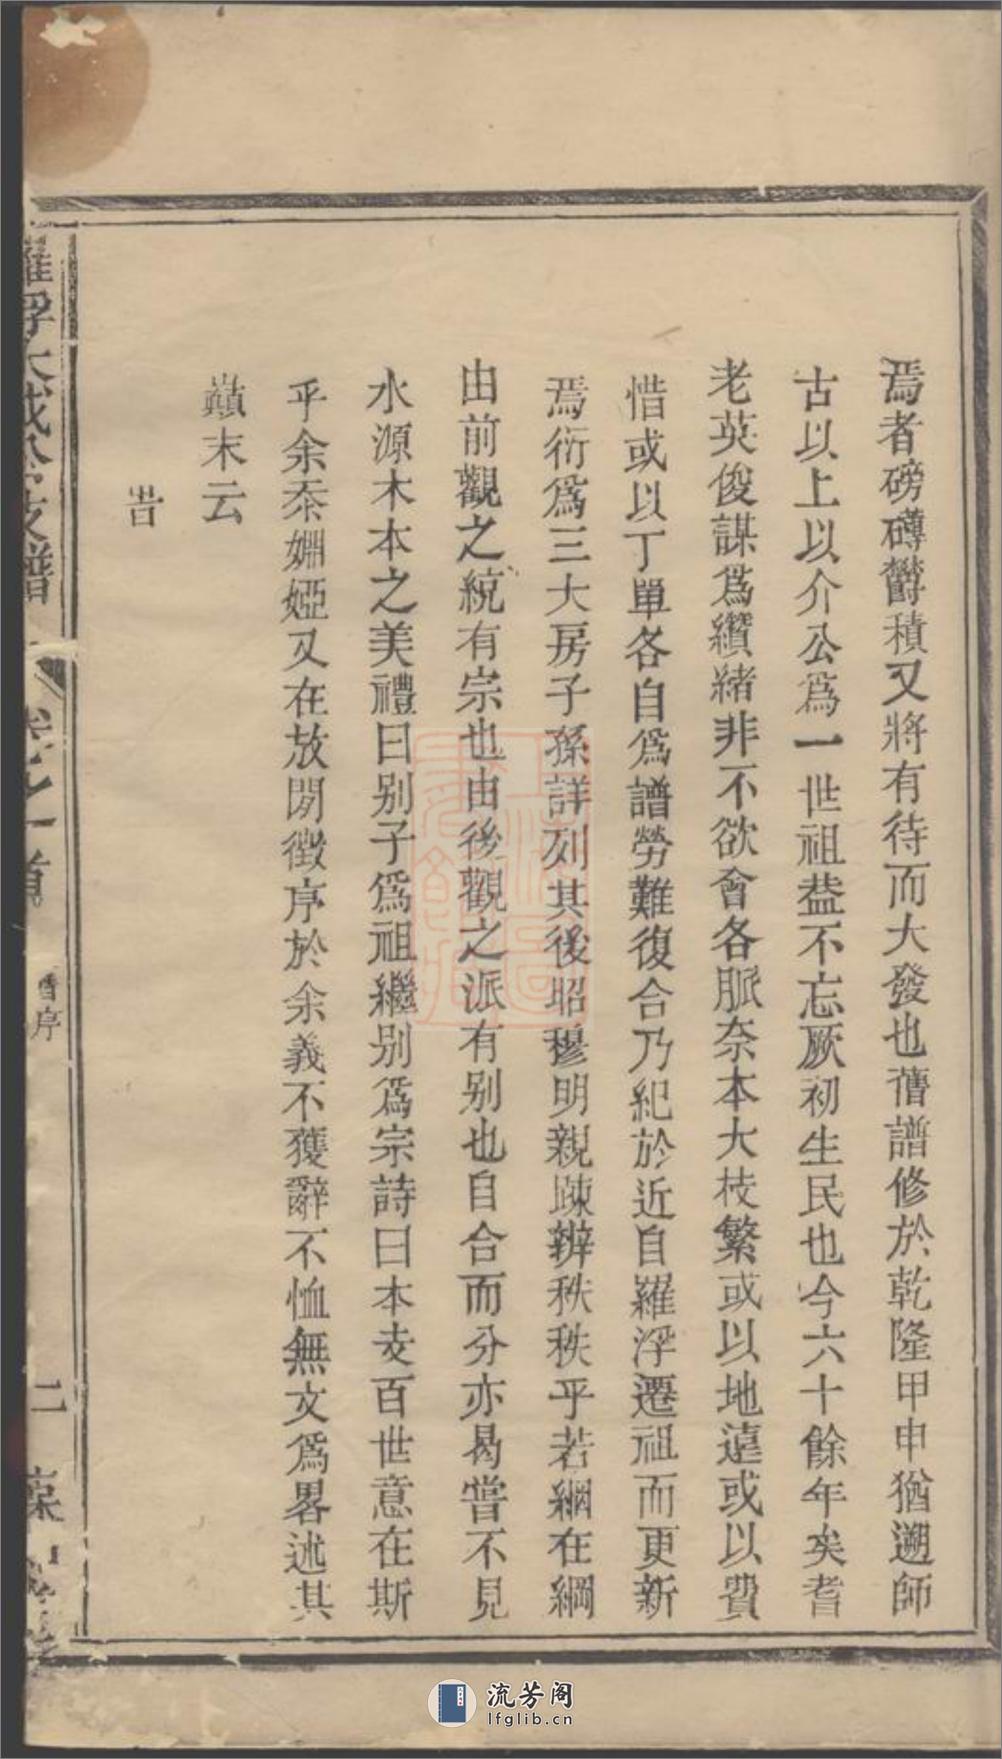 焉者磅礴欝積又將有待而大發也舊譜修於乾隆甲申猶遡師
古以上以介公爲一世祖益不忘厥初生民也今六十餘年矣耆
老英俊謀爲纘緒非不欲會各脈奈本大枝繁或以地遠或以費
惜或以丁單各自爲譜勞難復合乃紀於近自羅浮遷祖而更新
焉衍爲三大房子孫詳列其後昭穆明親踈辨秩秩乎若綱在綱
由前觀之統有宗也由後觀之派有别也自合而分亦曷嘗不見
水源木本之美禮曰别子爲祖繼别爲宗詩曰本支百世意在斯
乎余忝婣婭又在放閒徵序於余義不獲辭不恤無文爲畧述其
巔末云
旹
羅浮大成公支譜 卷之首 舊序 二
流芳阁
lfglib.cn